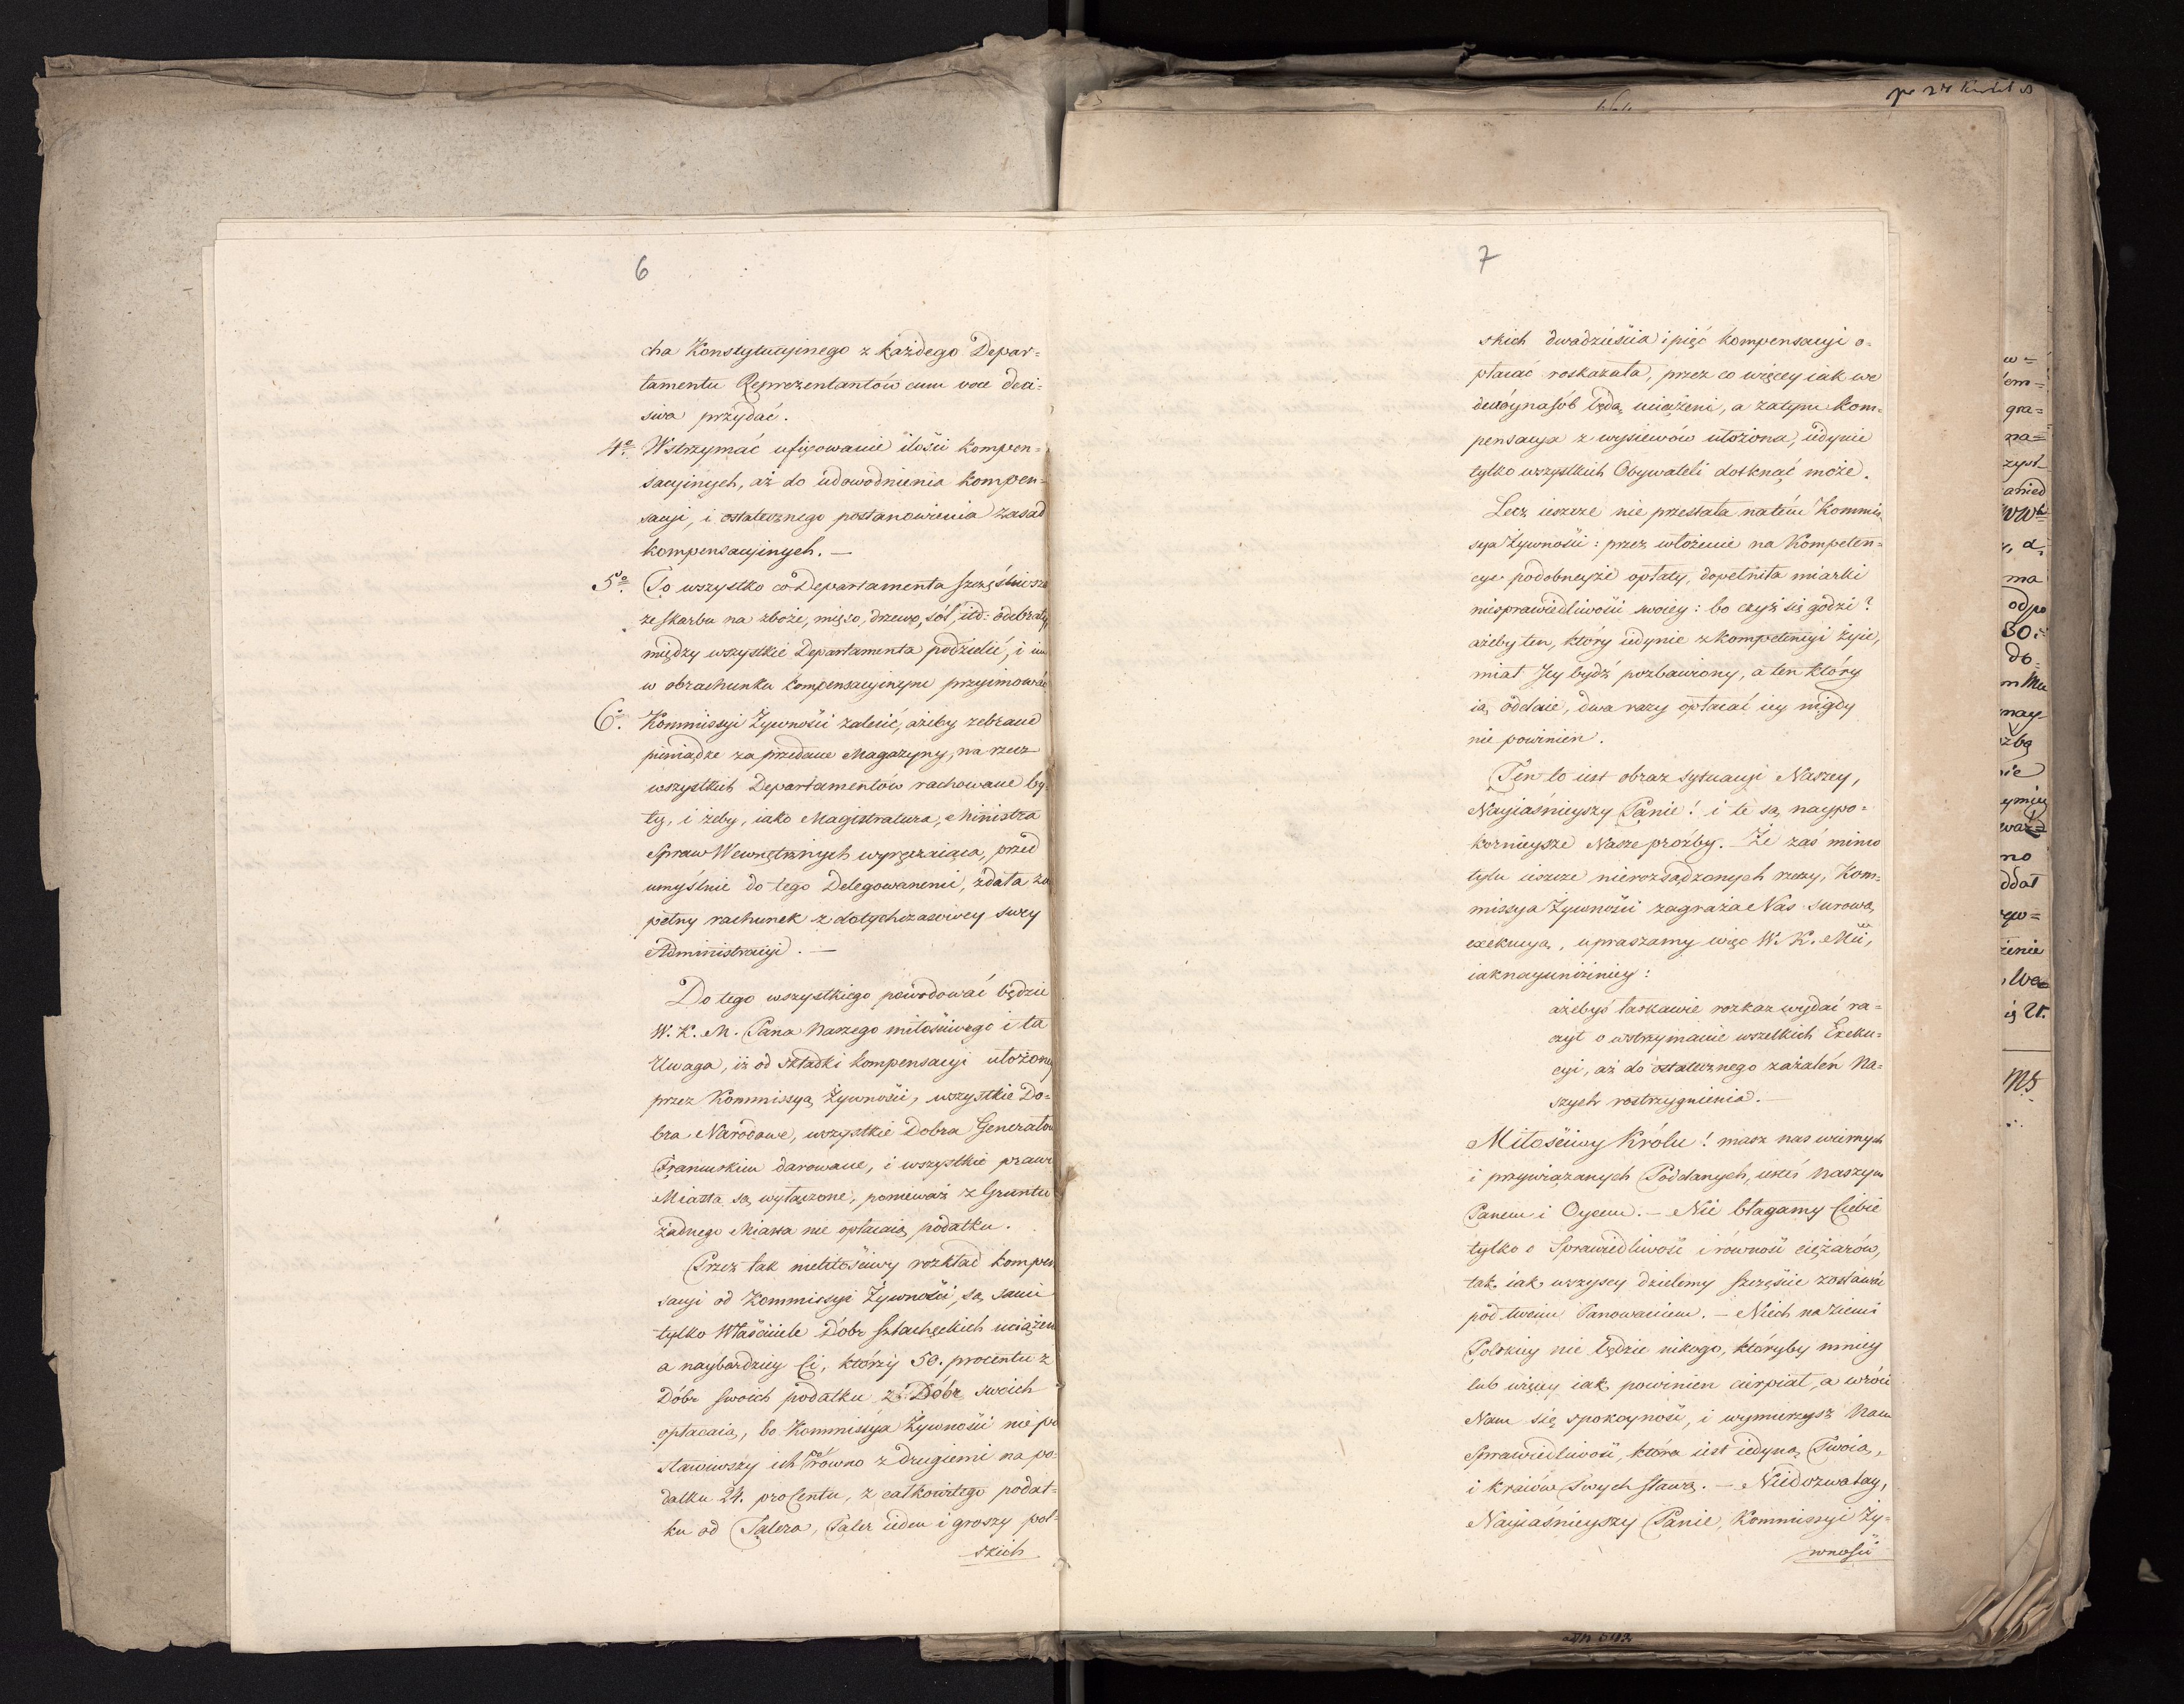 6
cha Konstytucyjnego z każdego Depar=
tamentu Reprezentantów cum voce deci=
siva przydać.
4o Wstrzymać ufixowanie ilości kompen=
sacyinych, aż do udowodnienia kompen=
sacyi, i ostatecznego postanowienia zasad
kompensacyinych. —
5o To wszystko co Departamenta szczęśliwsze
ze skarbu na zboże, mięso, drzewo, sól, itd: odebrały,
między wszystkie Departamenta podzielić, i im
w obrachunku kompensacyinym przyimować
6o Kommissyi Żywności zalecić, ażeby zebrane
pieniądze za przedane Magazyny, na rzecz
wszystkich Departamentów rachowane by=
ły, i żeby, iako Magistratura, Ministra
Spraw Wewnętrznych wyręczaiąca, przed
umyślnie do tego Delegowanemi, zdała zu
pełny rachunek z dotychczasowey swey
Administracyi. —
Do tego wszystkiego powodować będzie
W. K. M. Pana Naszego miłościwego i ta
Uwaga, iż od składki kompensacyi ułożoney
przez Kommissyą Żywności, wszystkie Do=
bra Narodowe, wszystkie Dobra Generałom
Francuskim darowane, i wszystkie prawie
Miasta są wyłączone, ponieważ z Gruntu
żadnego Miasta nie opłacaią podatku.
Przez tak nielitościwy rozkład kompen
sacyi od Kommissyi Żywności, są sami
tylko Właściciele Dóbr szlacheckich uciążeni
a naybardziey Ci, którzy 50. procentu z
Dóbr swoich podatku z Dóbr swoich
opłacaią, bo Kommissya Żywności nie po
stawiwszy ich na równo z drugiemi na po=
datku 24. procentu, z całkowitego podat=
ku od Talera, Taler ieden i groszy pol=
skich
7
skich dwadzieścia i pięć kompensacyi o=
płacać roskazała, przez co więcey iak we
dwóynasób będą uciążeni, a zatym kom=
pensacya z wysiewów ułożona, iedynie
tylko wszystkich Obywateli dotknąć może.
Lecz ieszcze nie przestała na tém Kommis
sya Żywności: przez włożenie na Kompeten=
cye podobneyże opłaty, dopełniła miarki
niesprawiedliwości swoiey: bo czyż się godzi?
ażeby ten, który iedynie z kompetencyi żyie,
miał Jey bydź pozbawiony, a ten który
ią oddaie, dwa razy opłacać iey nigdy
nie powinien.
Ten to iest obraz sytuacyi Naszey,
Nayiaśnieyszy Panie! i te są naypo=
kornieysze Nasze prozby. Że zaś mimo
tylu ieszcze nierozsądzonych rzeczy, Kom=
missya Żywności zagraża Nas surową
exekucyą, upraszamy więc W. K. Mci,
iaknayuniżeniey:
ażebyś łaskawie rozkaz wydać ra=
czył o wstrzymanie wszelkich Exeku=
cyi, aż do ostatecznego zażaleń Na=
szych rostrzygnienia. —
Miłościwy Królu! masz nas wiernych
i przywiązanych Poddanych, iesteś Naszym
Panem i Oycem. — Nie błagamy Ciebie
tylko o Sprawiedliwość i równość ciężarów,
tak iak wszyscy dzielimy szczęście zostawać
pod twoim Panowaniem. — Niech na ziemi
Polskiey nie będzie nikogo, któryby mniey
lub więcey iak powinien cierpiał, a wróci
Nam się spokoyność, i wymierzysz Nam
Sprawiedliwość, która iest iedyną Twoią,
i kraiów Twych sławą. — Niedozwalay,
Nayiaśnieyszy Panie, Kommissyi Ży=
wności